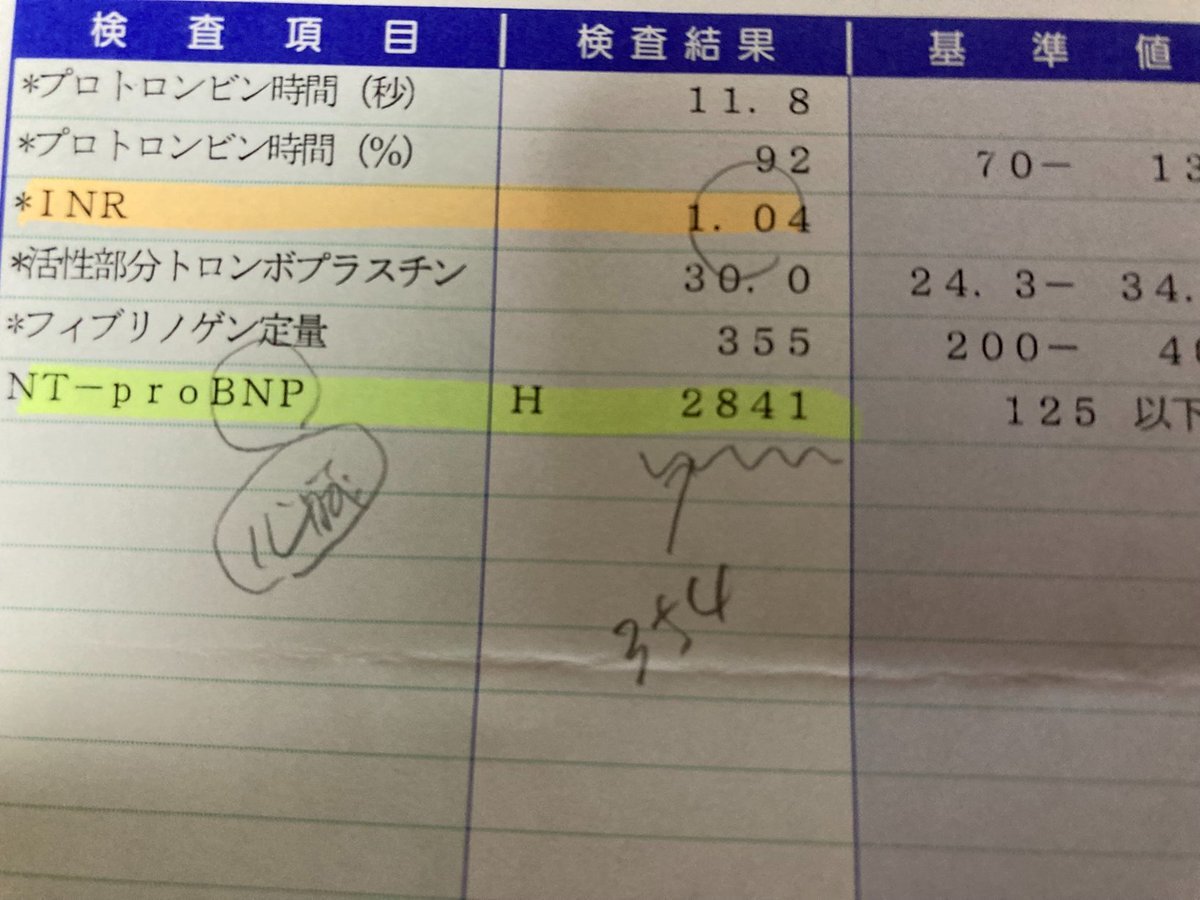 検査項目 検査結果 基準値
*プロトロンビン時間(秒) 11.8
*プロトロンビン時間(%) 92 70- 13
*INR 1.04
*活性部分トロンボプラスチン 30.0 24.3- 34.
*フィブリノゲン定量 355 200- 4
NT-proBNP H 2841 125 以下
心臓
354